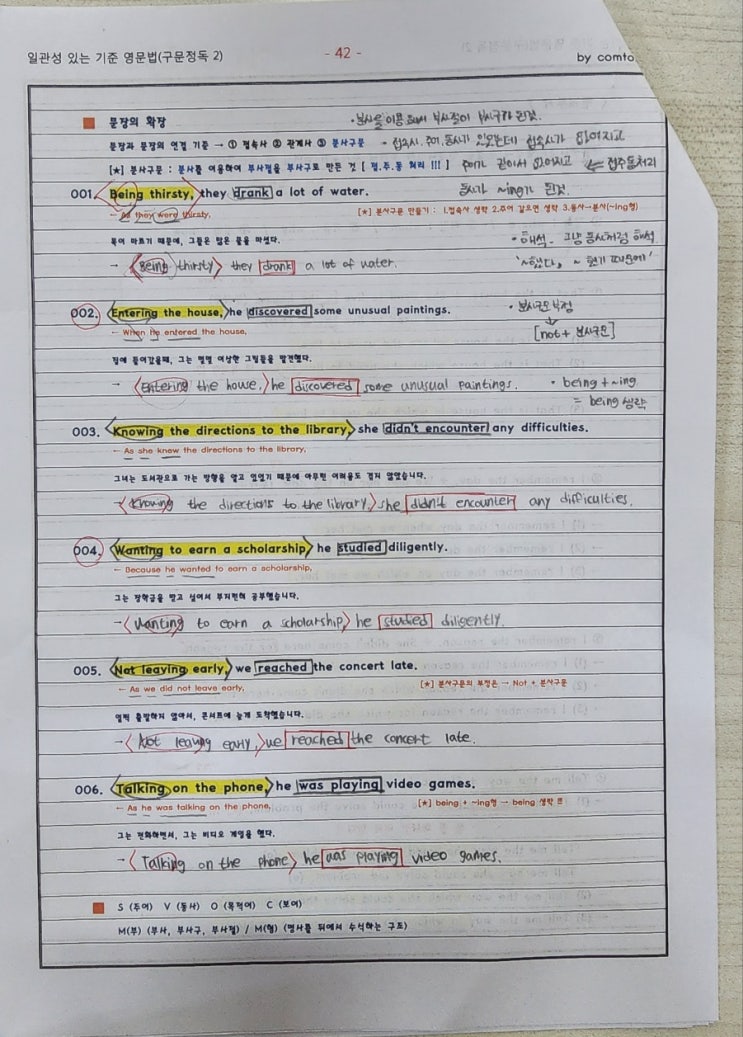 일관성 있는 기준 영문법(구문정독 2)
- 42 -
by comto
문장의 확장
• 분사를 이용해서 부사절이 부사구가 된것.
문장과 문장의 연결 기준 → ① 접속사 ② 관계사 ③ 분사구문
• 접속사, 주어, 동사가 있었는데 접속사가 없어지고
[★] 분사구문 : 분사를 이용하여 부사절을 부사구로 만든 것 [ 접.주.동 처리 !!! ]
주어가 같아서 없어지고 ⇐ 접주동처리
001. Being thirsty, they drank a lot of water.
동사가 ~ing가 된것.
← As they were thirsty,
[★] 분사구문 만들기 : 1.접속사 생략 2.주어 같으면 생략 3.동사→분사(~ing형)
목이 마르기 때문에, 그들은 많은 물을 마셨다.
• 해석. 그냥 동사처럼 해석
→ Being thirsty they drank a lot of water.
'~했다, ~ 했기 때문에'
002. Entering the house, he discovered some unusual paintings.
• 분사구문 부정
← When he entered the house,
[not + 분사구문]
집에 들어갔을때, 그는 몇몇 이상한 그림들을 발견했다.
→ Entering the house, he discovered some unusual paintings.
• being + ~ing
= being 생략
003. Knowing the directions to the library, she didn't encounter any difficulties.
← As she knew the directions to the library,
그녀는 도서관으로 가는 방향을 알고 있었기 때문에 아무런 어려움도 겪지 않았습니다.
→ Knowing the directions to the library, she didn't encounter any difficulties.
004. Wanting to earn a scholarship he studied diligently.
← Because he wanted to earn a scholarship,
그는 장학금을 받고 싶어서 부지런히 공부했습니다.
→ Wanting to earn a scholarship he studied diligently.
005. Not leaving early, we reached the concert late.
← As we did not leave early,
[★] 분사구문의 부정은 → Not + 분사구문
일찍 출발하지 않아서, 콘서트에 늦게 도착했습니다.
→ Not leaving early, we reached the concert late.
006. Talking on the phone, he was playing video games.
← As he was talking on the phone,
[★] being + ~ing형 → being 생략
그는 전화하면서, 그는 비디오 게임을 했다.
→ Talking on the phone he was playing video games.
S (주어) V (동사) O (목적어) C (보어)
M(부) (부사, 부사구, 부사절) / M(형) (명사를 뒤에서 수식하는 구조)